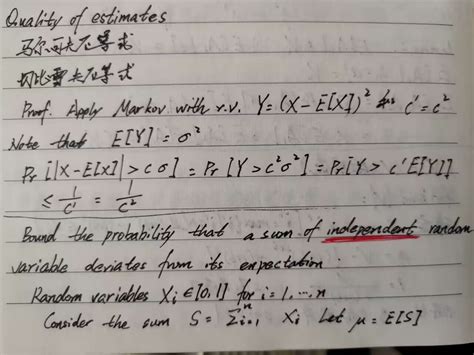 Quality of estimates
马尔可夫不等式
切比雪夫不等式
Proof. Apply Markov with r.v. Y=(X-E[X])² c'=c²
Note that E[Y]=σ²
Pr[|X-E[X]|>cσ]=Pr[Y>c²σ²]=Pr[Y>c'E[Y]]
≤ 1/c' = 1/c²
Bound the probability that a sum of independent random
variable deviates from its expectation.
Random variables Xi∈[0,1] for i=1,...n
Consider the sum S=Σⁿi=1 Xi Let μ=E[S]